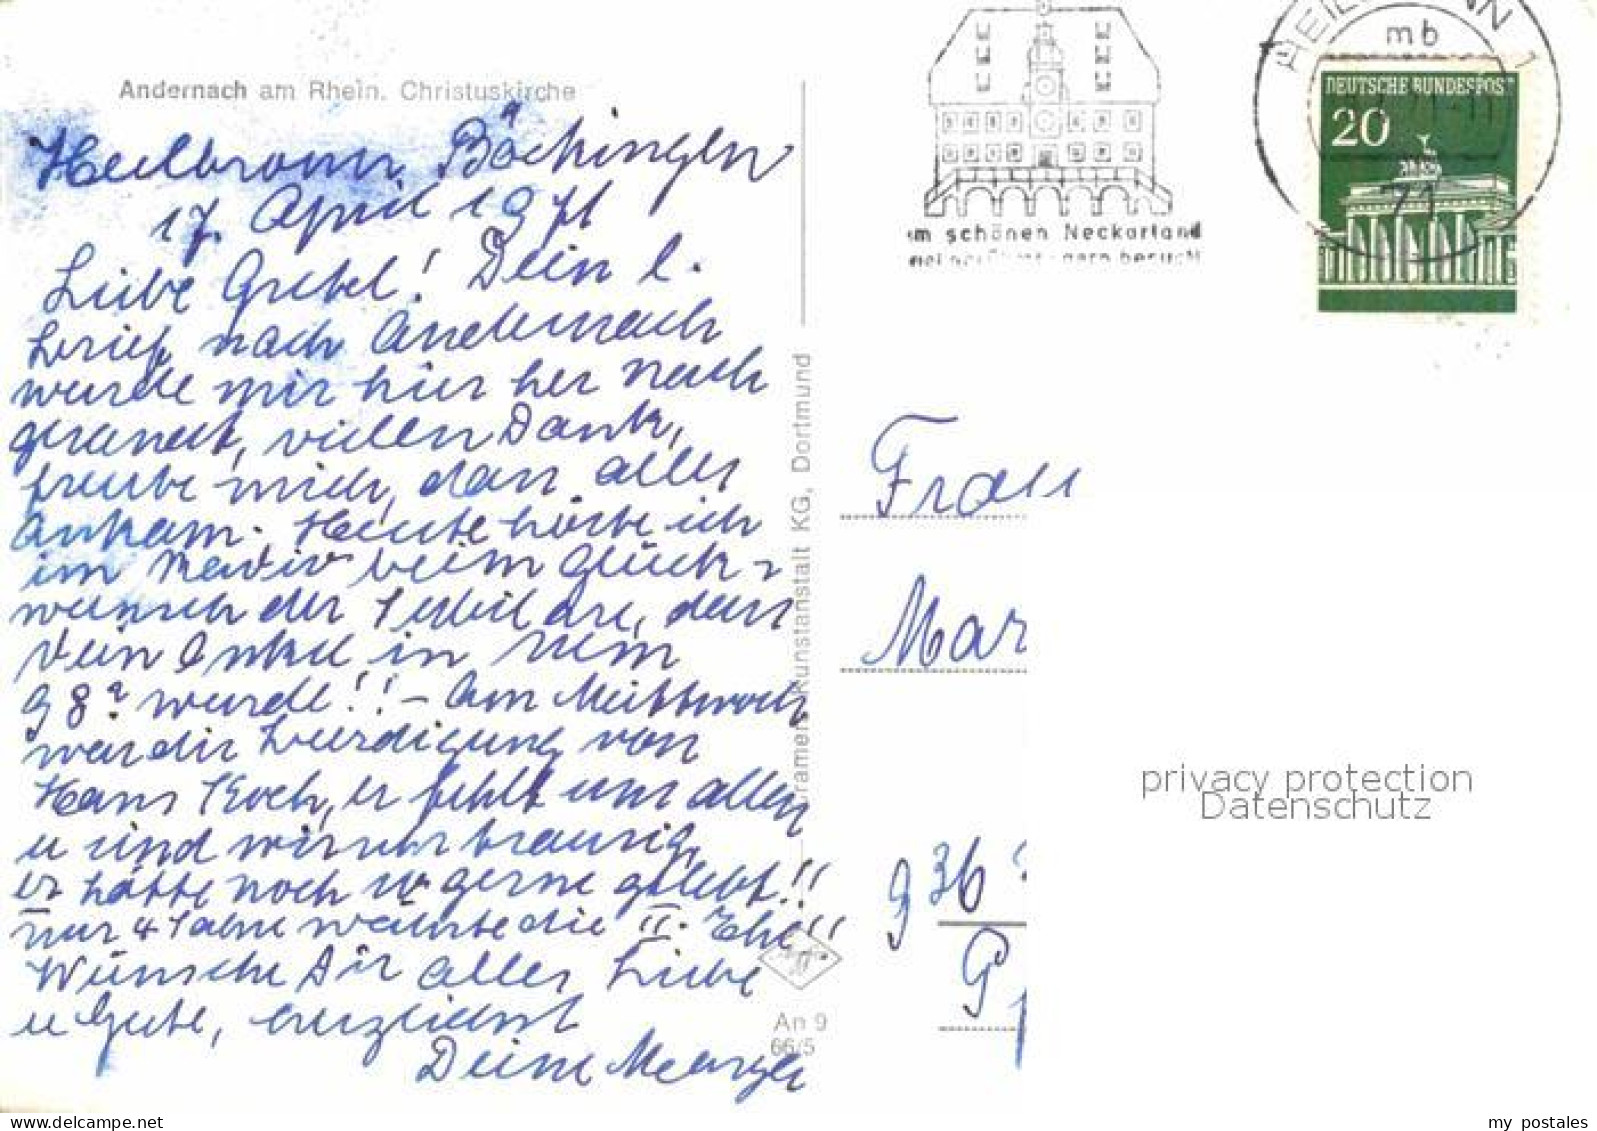 Andernach am Rhein. Christuskirche
Heilbronn Böckingen
17. April 1971
Liebe Gretel! Dein l.
Brief nach Andernach
wurde mir hier her nach
gesandt, vielen Dank,
freute mich, dass alles
ankam. Heute hörte ich
im Radio beim Glück-
wunsch der Jubilare, dass
Dein Onkel in Rhem
98? wurde!! - Am Mittwoch
war die Beerdigung von
Hans Koch, er fehlt uns allen
u sind wir sehr traurig,
er hätte noch so gerne gelebt!!
nur 4 Jahre währte die II. Ehe!!
Wünsche Dir alles Liebe
u Gute, herzlichst
Deine
Cramers Kunstanstalt KG, Dortmund
An 9
66/5
im schönen Neckarland
HEILBRONN 1
mb
71
DEUTSCHE BUNDESPOST
20
Frau
Mar
936
privacy protection
Datenschutz
my postales